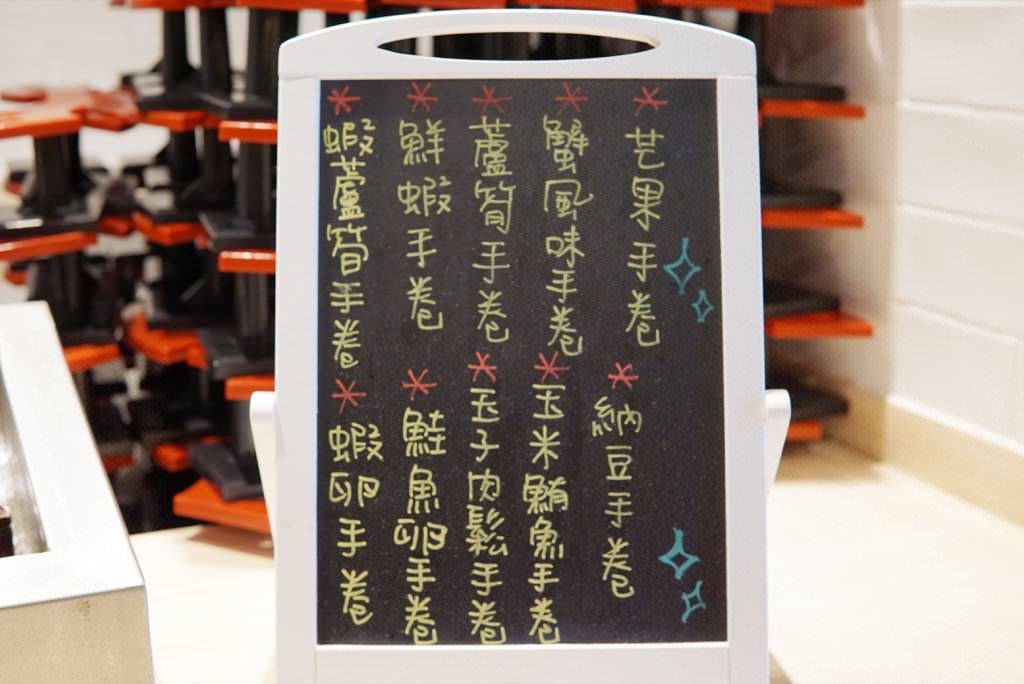 *芒果手卷
*蟹風味手卷
*蘆筍手卷
*鮮蝦手卷
*蝦蘆筍手卷
*納豆手卷
*玉米鮪魚手卷
*玉子肉鬆手卷
*鮭魚卵手卷
*蝦卵手卷